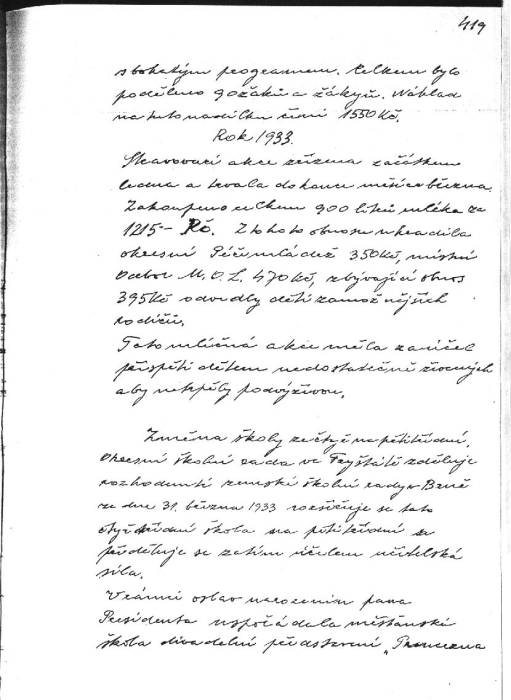 419
s bohatým programem. Celkem bylo
poděleno 90 žáků a žákyň. Náklad
na tuto nadílku činí 1550 Kč.
Rok 1933.
Stravovací akce zřízena začátkem
ledna a trvala do konce měsíce března.
Zakoupeno celkem 900 litrů mléka za
1215 - Kč. Z tohoto obnosu uhradila
okresní Péče mládež 350 Kč, místní
Odbor M.O.L. 470 Kč, zbývající obnos
395 Kč odvedly děti zámožnějších
rodičů.
Tato mléčná akce měla za účel
přispěti dětem nedostatečně živených
aby netrpěly podvýživou.
Změna školy ze čtyř na pětitřídní.
Okresní školní rada ve Fryštátě sděluje
rozhodnutí zemské školní rady v Brně
ze dne 31. března 1933 rozšiřuje se tato
čtyřtřídní škola na pětitřídní a
přiděluje se za tím účelem učitelská
síla.
V rámci oslav narozenin pana
Presidenta uspořádala měšťanská
škola divadelní představení „